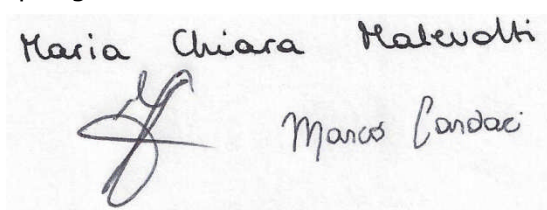 Maria Chiara Malevolti
Marco Candaci